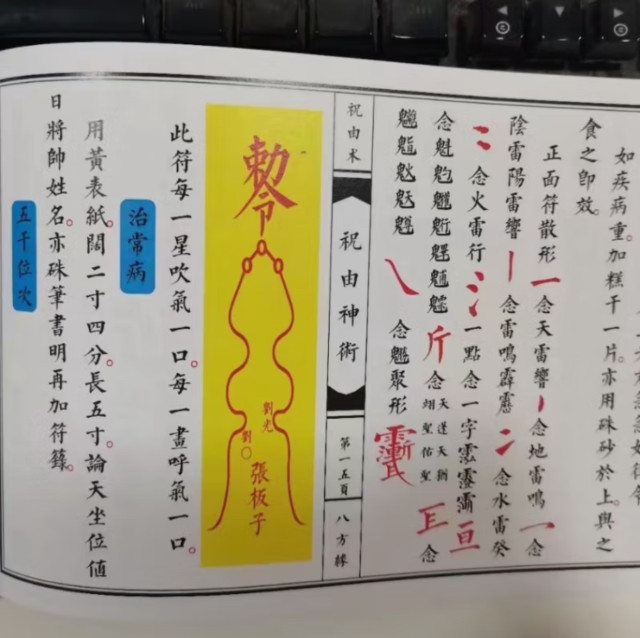 如疾病重。加糕干一片。亦用硃砂於上。與之
食之即效。
正面符散形 一 念天雷響 丿 念地雷鳴 一 念
陰雷陽雷響 丨 念雷鳴霹靂 二 念水雷癸
念火雷行 一點念一字
念 斤 念 天蓬天猷 翊聖佑聖 念
念魁聚形
祝由术
祝由神術
第一五頁
八方緣
敕令
劉光
劉〇
張板子
此符每一星吹氣一口。每一畫呼氣一口。
治常病
用黃表紙。闊二寸四分。長五寸。論天坐位值
日將帥姓名。亦硃筆書明再加符籙。
五千位次